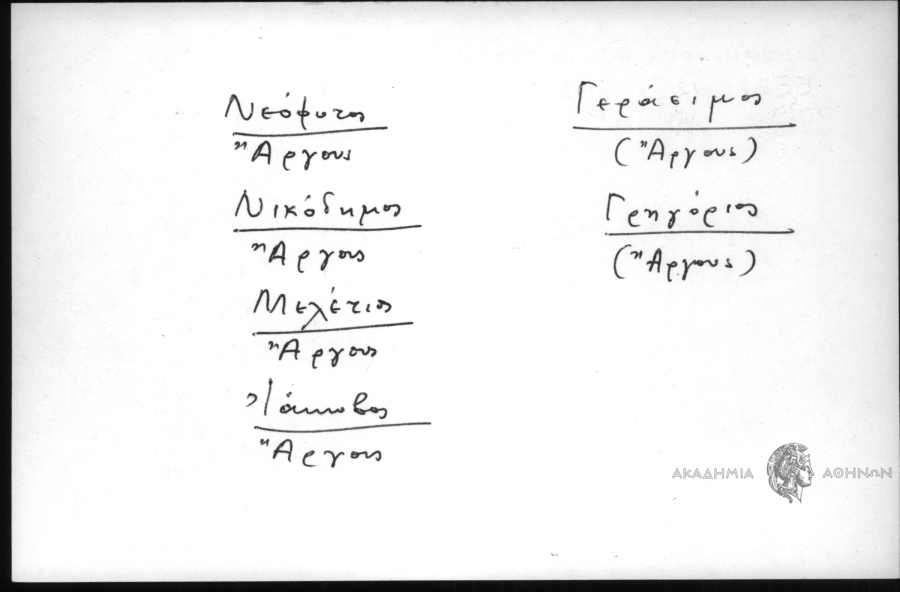 Νεόφυτος
Ἄργους
Νικόδημος
Ἄργους
Μελέτιος
Ἄργους
Ἰάκωβος
Ἄργους
Γεράσιμος
(Ἄργους)
Γρηγόριος
(Ἄργους)
ΑΚΑΔΗΜΙΑ ΑΘΗΝΩΝ